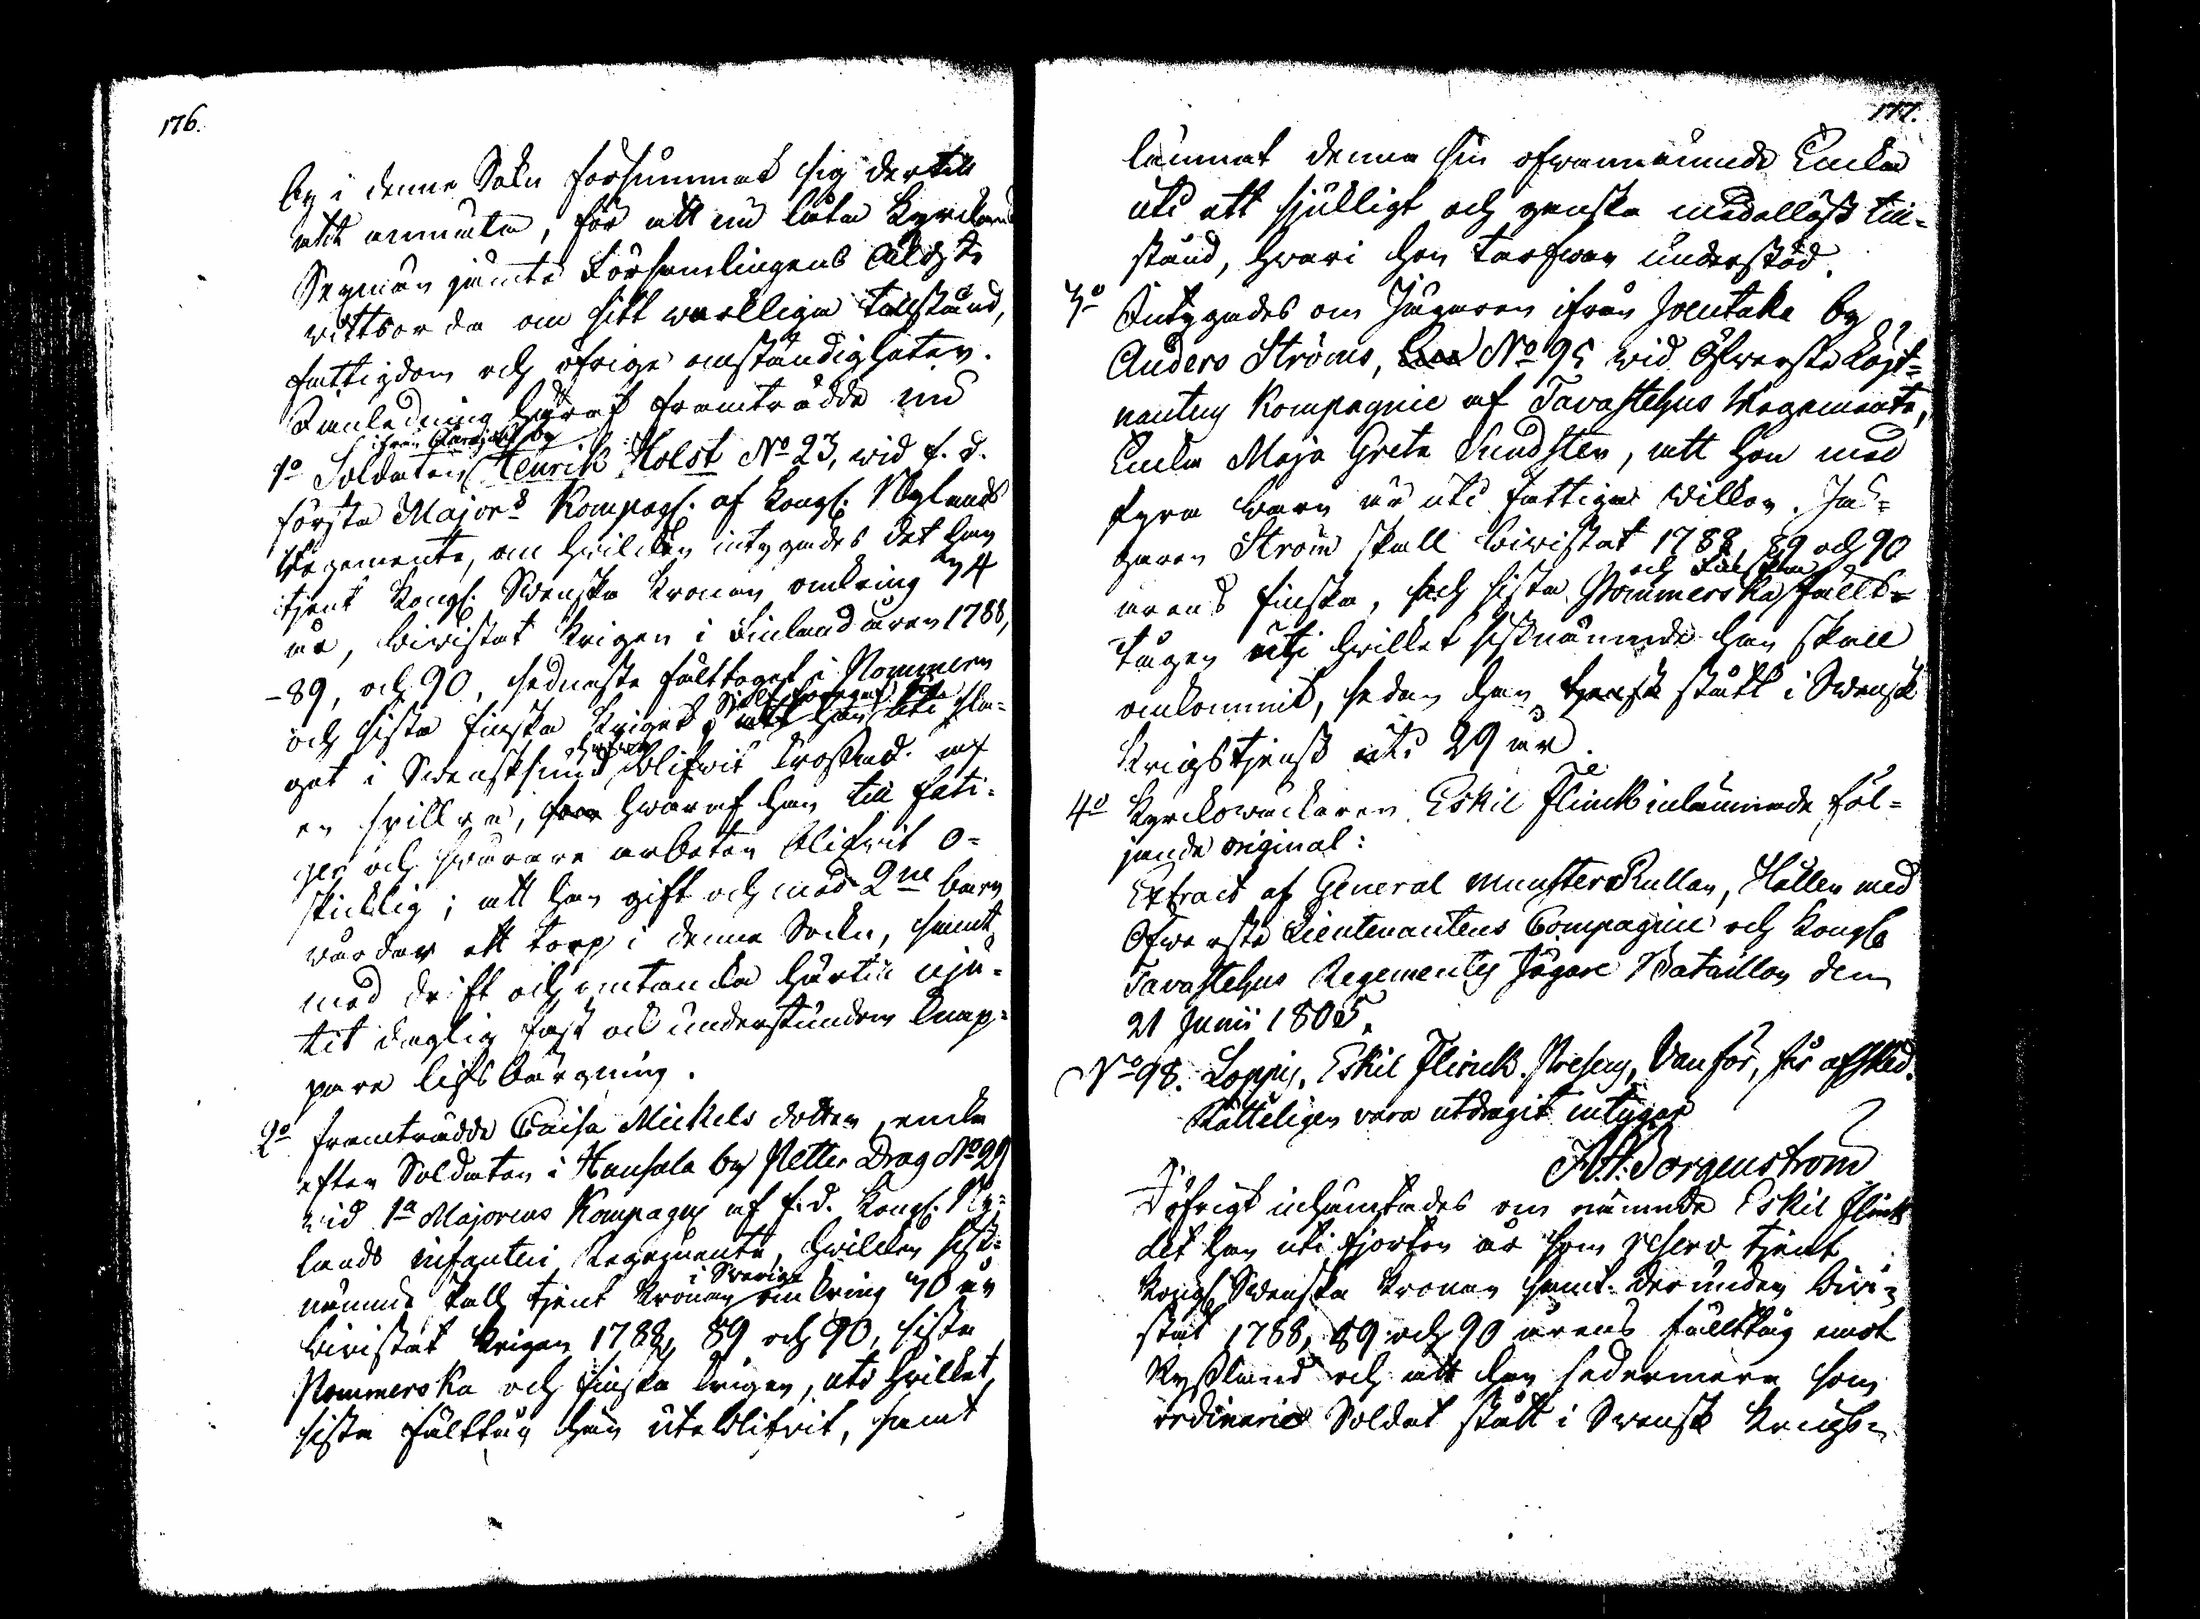 176.
by i denne Sokn försummat sig dertill
att anmäla, för att nu låta Kyrckoherd
Seyman jämte Församlingens Äldste
wittsorda om sitt werkliga tillstånd,
fattigdom och öfrige omständigheter.
I anledning häraf framträdde nu
ifrån by
1o Soldaten Henrik Holst No 23, wid f. d.
första Majors Kompagn. af Kongl. Nylands
Regemente, om hvilcken intygades det han
tjent Kongl. Svenska Kronan omkring 34
år, biwistat krigen i Finland åren 1788,
-89, och 90, sednaste fälttoget i Pommern
och sista finska kriget, att han uti sla-
get i Swensksund blifwit krossad af
en spillra, hwaraf han till fati-
ger och swårare arbeten blifwit o-
skicklig; att han gift och med 2ne barn
wårdar ett torp i denne Sockn, samt
med drift och omtancka härtill nju-
tit daglig fast och understundom knap-
pare lifsbärgning.
2o framträdde Caisa Mickels dotter, encka
efter Soldaten i Hansala by Petter Drag No 29
wid 1a Majorens Kompagn af f. d. Kongl. Ny-
lands infanteri Regemente, hvilcken sist-
i Sverige
nämnde skall tjent Kronan omkring 30 år
biwistat krigen 1788, 89 och 90, sista
Pommerska och finska krigen, uti hvilket
sista fälttåg han uteblifvit, samt
177.
lämnat denna sin ofwannämnde Encka
uti ett sjukligt och ganska medellöst till-
stånd, hwari hon tarfwar understöd.
3o Intygades om Jägaren ifrån Joentaka by
Anders Ströms, No 95 wid Öfwerste Löjt-
nantens Kompagnie af Tavastehus Regemente,
Encka Maja Greta Sundsten, att hon med
fyra barn är uti fattiga willkor. Jä-
garen Ström skall biwistat 1788, 89 och 90
och Finska
årens finska, och sista Pommerska fält-
tågen uti hvilket sistnämnde han skall
omkommit, sedan han stått i Swensk
Krigstjenst uti 29 år.
4o Kyrckowäckaren Eskil Flinck inlämnade föl-
jande original:
Extract af General munster Rullan, Hållen med
Öfwerste Lieutenantens Compagnie och Kongl.
Tavastehus Regementes Jägare Bataillon den
21 Junii 1805.
No 98. Loppis, Eskil Flinck. Presens, Vanför, får afsked.
Rätteligen vara utdragit intygar
A. H. Borgenström
I öfrigt inhämtades om nämnde Eskil Flinck
det han uti fjorton år som reserv tjent
Kongl Swenska Kronan samt derunder biwi-
stat 1788, 89 och 90 årens fälttåg emot
Ryssland och att han sedermera som
ordinarie Soldat stått i Swensk Krigs-